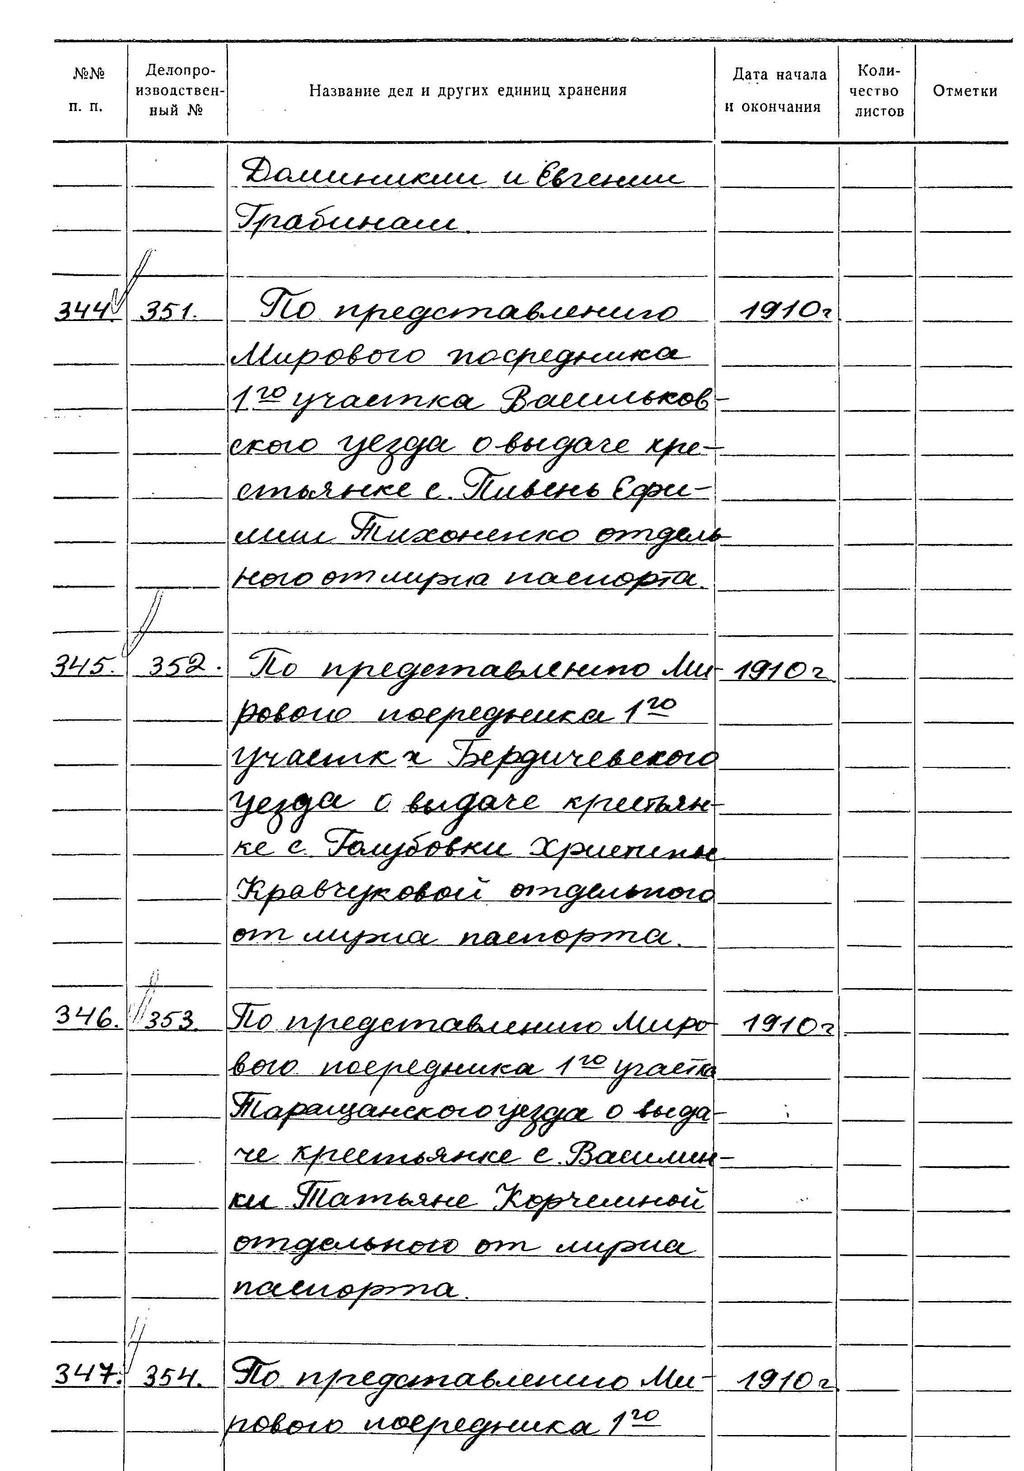 №№ п. п. Делопроизводствен-ный № Название дел и других единиц хранения Дата начала и окончания Коли-чество листов Отметки
Доминикии и Евгении
Грабинаш.
344. 351. По представлению 1910г
Мирового посредника
1го участка Васильков-
ского уезда о выдаче кре-
стьянке с. Пивень Ефи-
мии Тихоненко отдель
ного от мужа паспорта.
345. 352. По представлению Ми- 1910г
рового посредника 1го
участка Бердичевского
уезда о выдаче крестьян-
ке с. Голубовки Христине
Кравчуковой отдельного
от мужа паспорта.
346. 353. По представлению Миро- 1910г
вого посредника 1го участка
Таращанского уезда о выда-
че крестьянке с. Василин-
ки Татьяне Корчемной
отдельного от мужа
паспорта.
347. 354. По представлению Ми- 1910г
рового посредника 1го